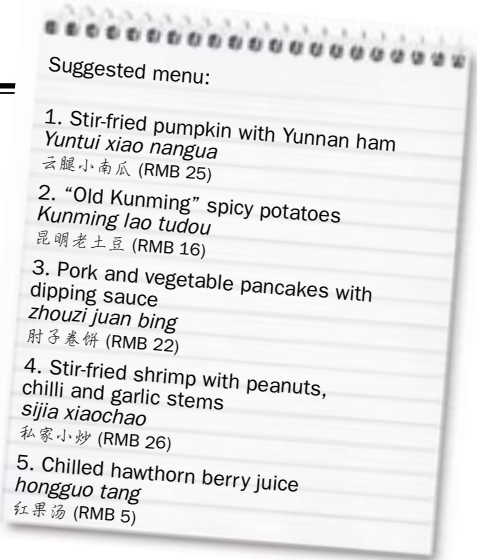 Suggested menu:
1. Stir-fried pumpkin with Yunnan ham
Yuntui xiao nangua
云腿小南瓜 (RMB 25)
2. “Old Kunming” spicy potatoes
Kunming lao tudou
昆明老土豆 (RMB 16)
3. Pork and vegetable pancakes with
dipping sauce
zhouzi juan bing
肘子卷饼 (RMB 22)
4. Stir-fried shrimp with peanuts,
chilli and garlic stems
sijia xiaochao
私家小炒 (RMB 26)
5. Chilled hawthorn berry juice
hongguo tang
红果汤 (RMB 5)